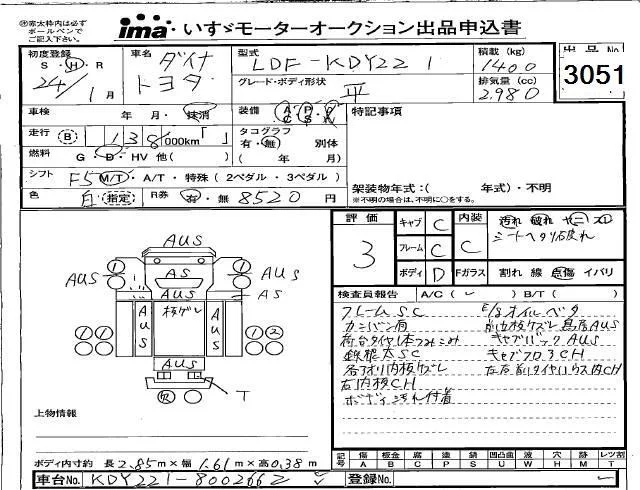 ㊟赤太枠内は必ず
ボールペンで
ご記入下さい。
ima・いすゞモーターオークション出品申込書
初度登録 S・H・R 24年/1月
車名 ダイナ トヨタ
型式 LDF-KDY221
積載(kg) 1400
出品No 3051
グレード・ボディ形状 平
排気量(cc) 2.980
車検 年・月・抹消
装備 A/C P/S P/W
特記事項
走行 B 138,000km「 」
タコグラフ 有・無 別体
燃料 G・D・HV 他( )
( 年 月)
シフト F5 M/T・A/T・特殊(2ペダル・3ペダル)
架装物年式:( 年式)・不明
※不明の場合は、不明に○をする。
色 白 指定 R券 有・無 8520円
評価 3
キャブ C 内装 C
フレーム C
ボディ D Fガラス
汚れ 破れ ヤニ スレ
シートヘタリ 破れ
割れ 線 点傷 イバリ
検査員報告 A/C( ✓ ) B/T( )
フレームSC
カンバン有
荷台タイヤ1本つみこみ
鉄根太SC
各アオリ内板ケズレ
右内板CH
ボディ汚れ付着
E/gオイルベタ
キャブバックAUS
キャブフロアCH
AUS
AUS AUS
AS AS
AUS 板ケズレ AUS
AUS
T
上物情報
ボディ内寸約 長2.85m×幅1.61m×高0.38m
記号 傷A 板金B 腐C 塗P 錆S 凹凸曲U 波W 穴H 跡M レツ割T
車台No. KDY221-8002662
登録No.